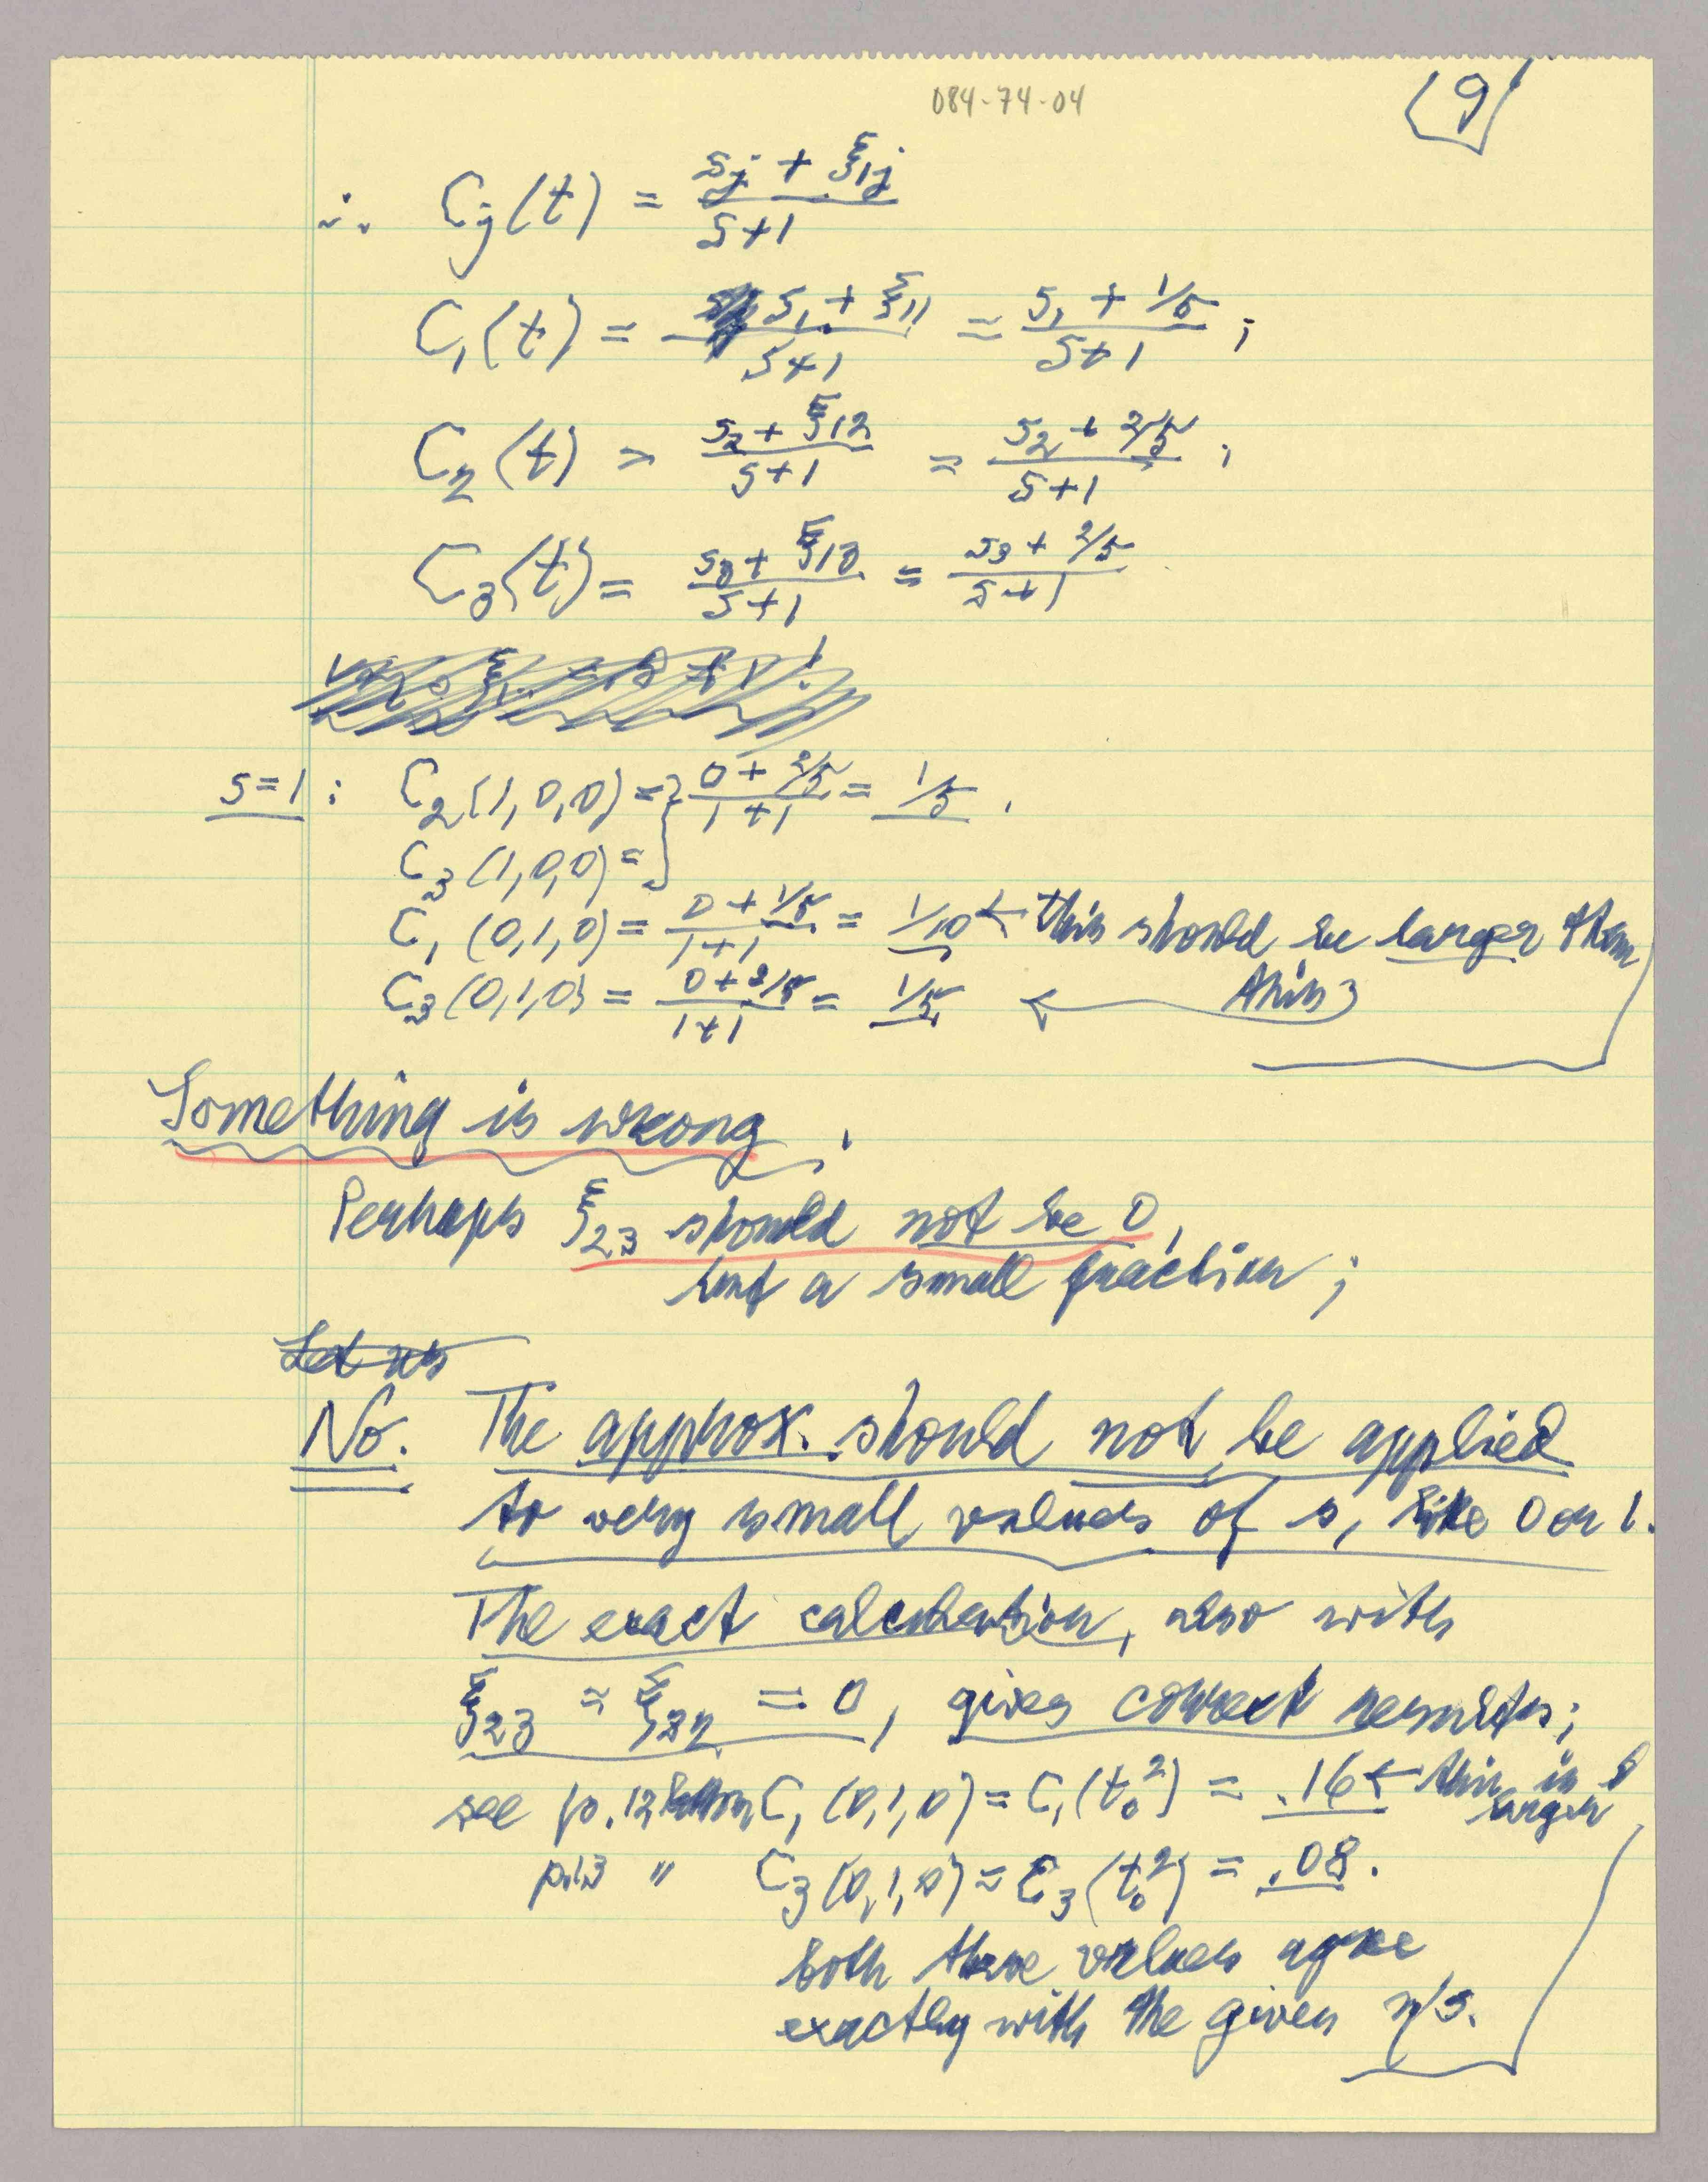 084-74-04
(9)
∴ C_j(t) = (s_j + ξ_1j)/(s+1)
C_1(t) = (s_1 + ξ_11)/(s+1) = (s_1 + 1/5)/(s+1) ;
C_2(t) = (s_2 + ξ_12)/(s+1) = (s_2 + 2/5)/(s+1) ;
C_3(t) = (s_3 + ξ_13)/(s+1) = (s_3 + 2/5)/(s+1)
s=1 : C_2(1,0,0) = } (0 + 2/5)/(1+1) = 1/5 .
C_3(1,0,0) = }
C_1(0,1,0) = (0 + 1/5)/(1+1) = 1/10 ← this should be larger than
C_3(0,1,0) = (0 + 2/5)/(1+1) = 1/5 ← this
Something is wrong.
Perhaps ξ_23 should not be 0,
but a small fraction ;
Let us
No. The approx. should not be applied
to very small values of s, like 0 or 1.
The exact calculation, also with
ξ_23 = ξ_32 = 0, gives correct results;
see p. 12 bottom C_1(0,1,0) = C_1(t_0^2) = .16 ← this is larger
p.13 " C_3(0,1,0) = C_3(t_0^2) = .08.
both these values agree
exactly with the given η's.